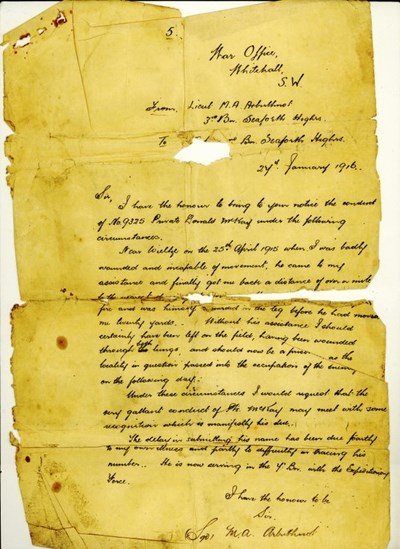 5.
War Office,
Whitehall,
S.W.
From Lieut M.A Arbuthnot
3rd Bn Seaforth Highrs.
To Bn. Seaforth Highrs.
January 1916.
Sir,
I have the honour to bring to your notice the conduct
of No. 9325 Private Donald McKay under the following
circumstances.
Near Wieltje on the 25th April 1915 when I was badly
wounded and incapable of movement, he came to my
assistance and finally got me back a distance of over a mile
to the
fire and was himself wound in the leg before he had
me twenty yards. Without his assistance I should
certainly have been left on the field, having been wounded
through both lungs, and should now be a as the
locality in question passed into the occupation of the enemy
on the following day.
Under these circumstances I would request that the
very gallant conduct of Pte. McKay may meet with some
recognition which is manifestly his due.
The delay in submitting his name has been due partly
to my own illness and partly to difficulty in tracing his
number. He is now serving in the Bn. with the Expeditionary
Force.
I have the honour to be
Sir.
Sgd M.A. Arbuthnot